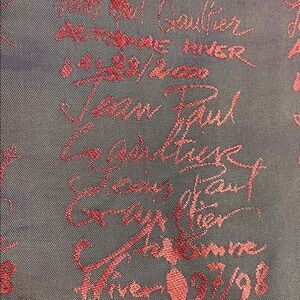 Jean Paul Gaultier
AUTOMNE HIVER
1999/2000
Jean Paul
Gaultier
Jean Paul
Gaultier
Automne
Hiver 97/98